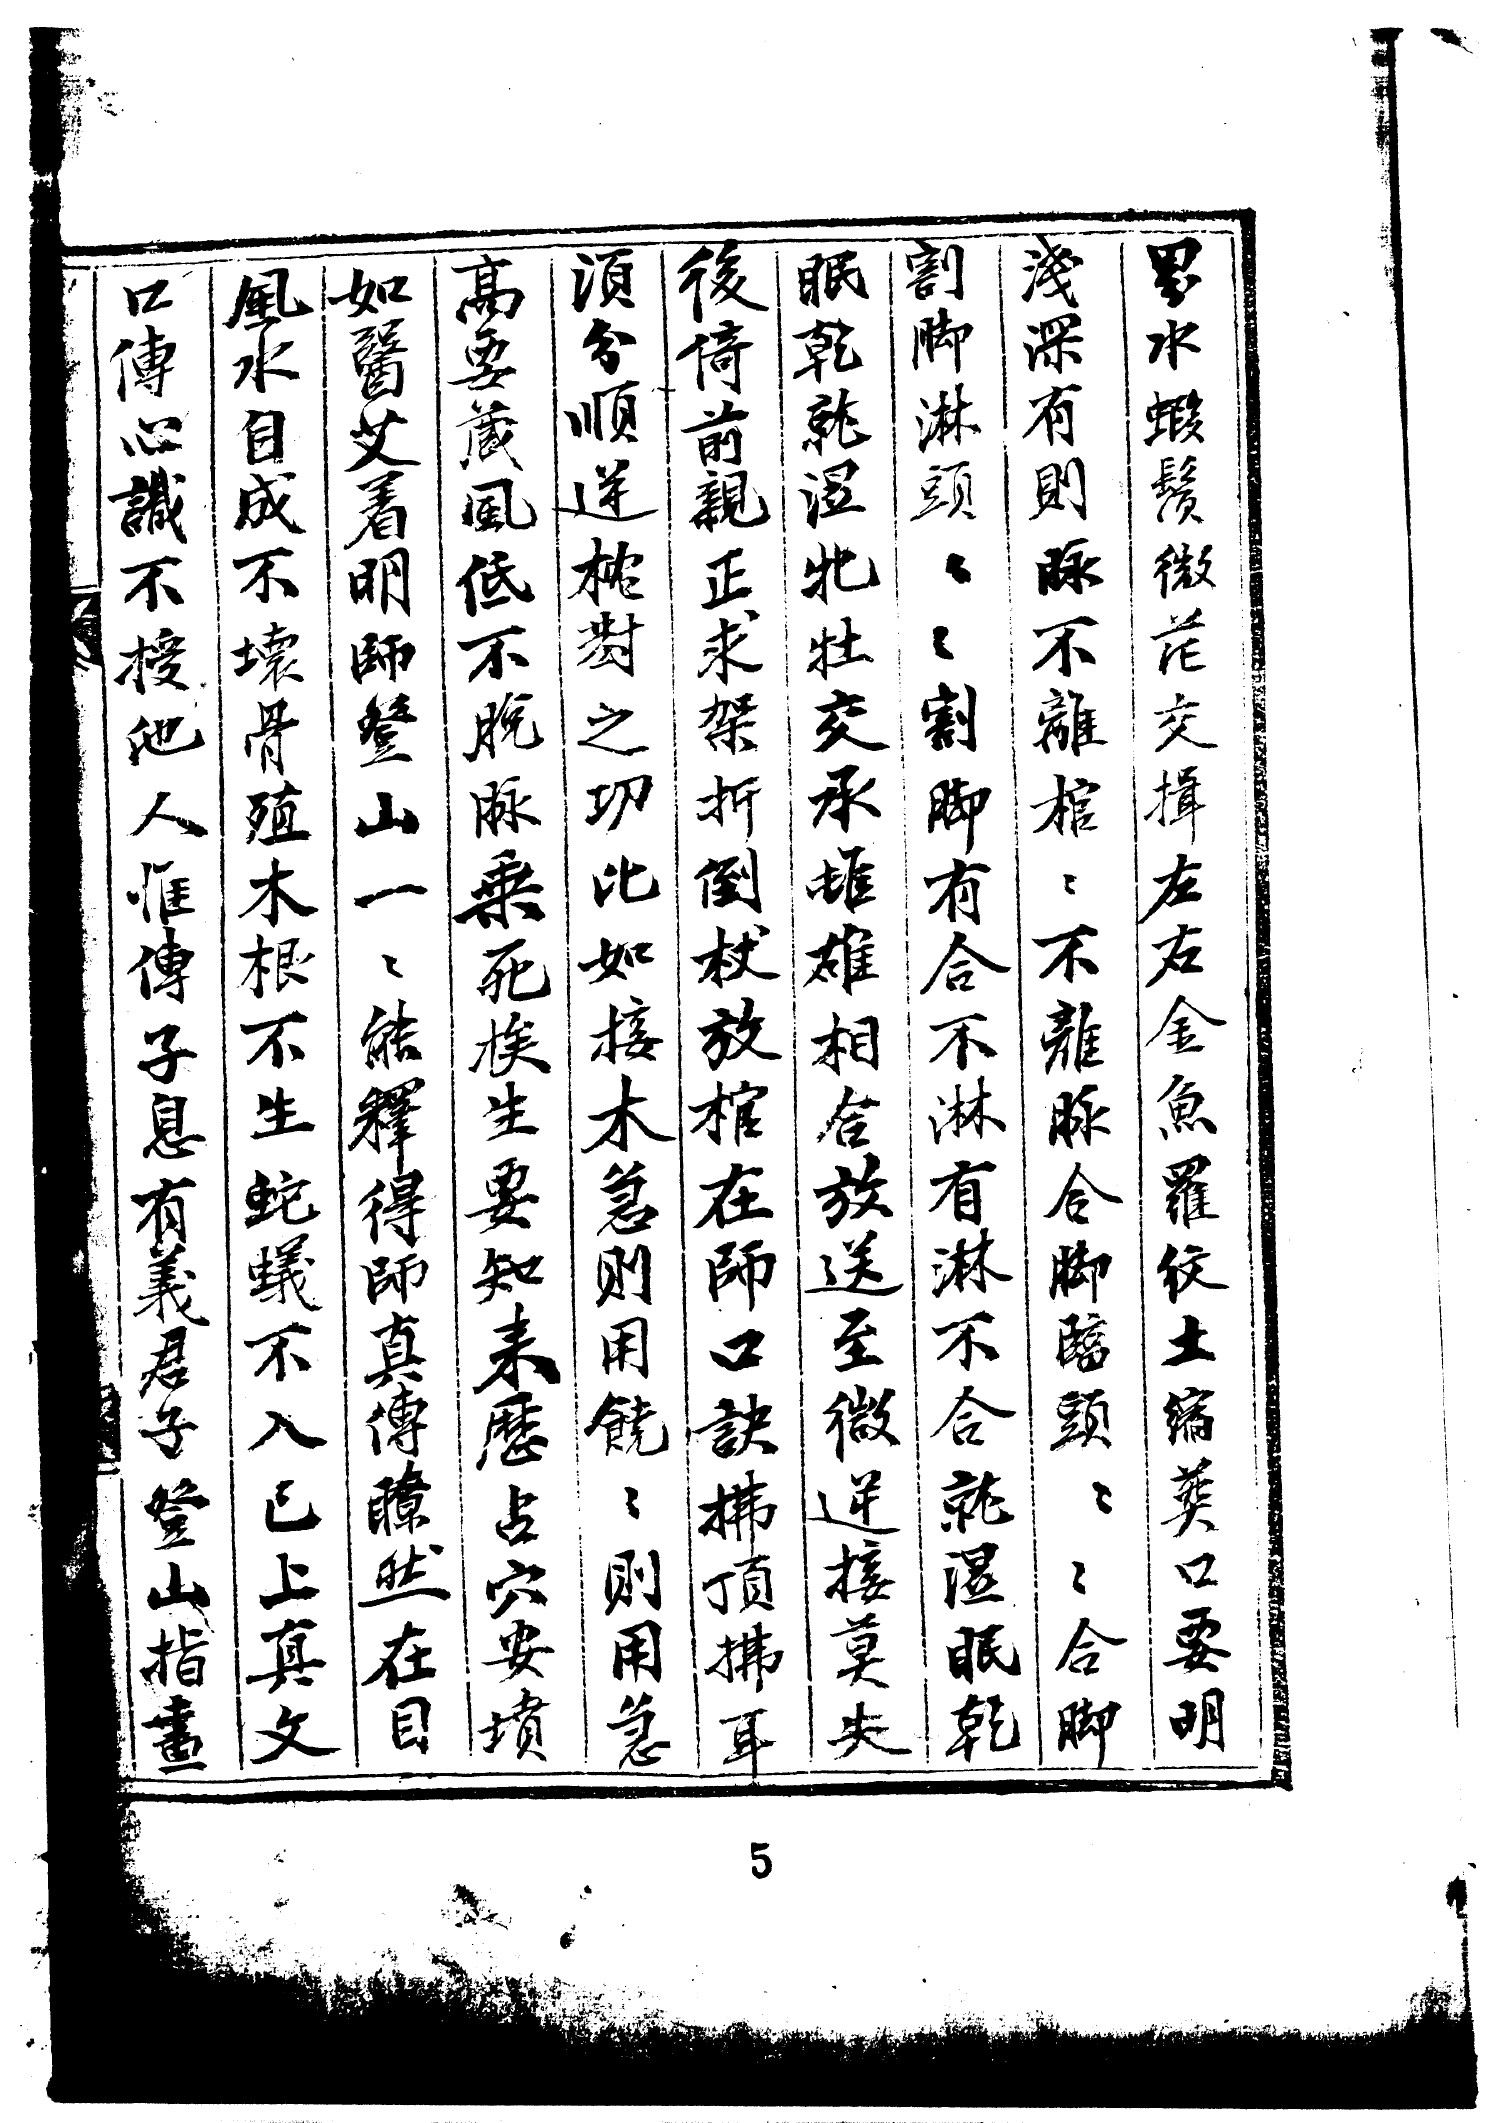 界水蝦鬚微茫交揖左右金魚羅紋土縮葬口要明
淺深有則脉不離棺〻不離脉合脚臨頭〻〻合脚
割脚淋頭〻〻割脚有合不淋有淋不合就湿眠乾
眠乾就湿牝牡交承雌雄相合放送至微逆接莫失
後倚前親正求架折倒杖放棺在師口訣拂頂拂耳
須分順逆枕對之功比如接木急則用饒〻則用急
高要藏風低不脫脉乗死挨生要知来歷占穴安墳
如醫艾着明師登山一〻能釋得師真傳瞭然在目
風水自成不壞骨殖木根不生蛇蟻不入已上真文
口傳心識不授他人惟傳子息有義君子登山指畫
5